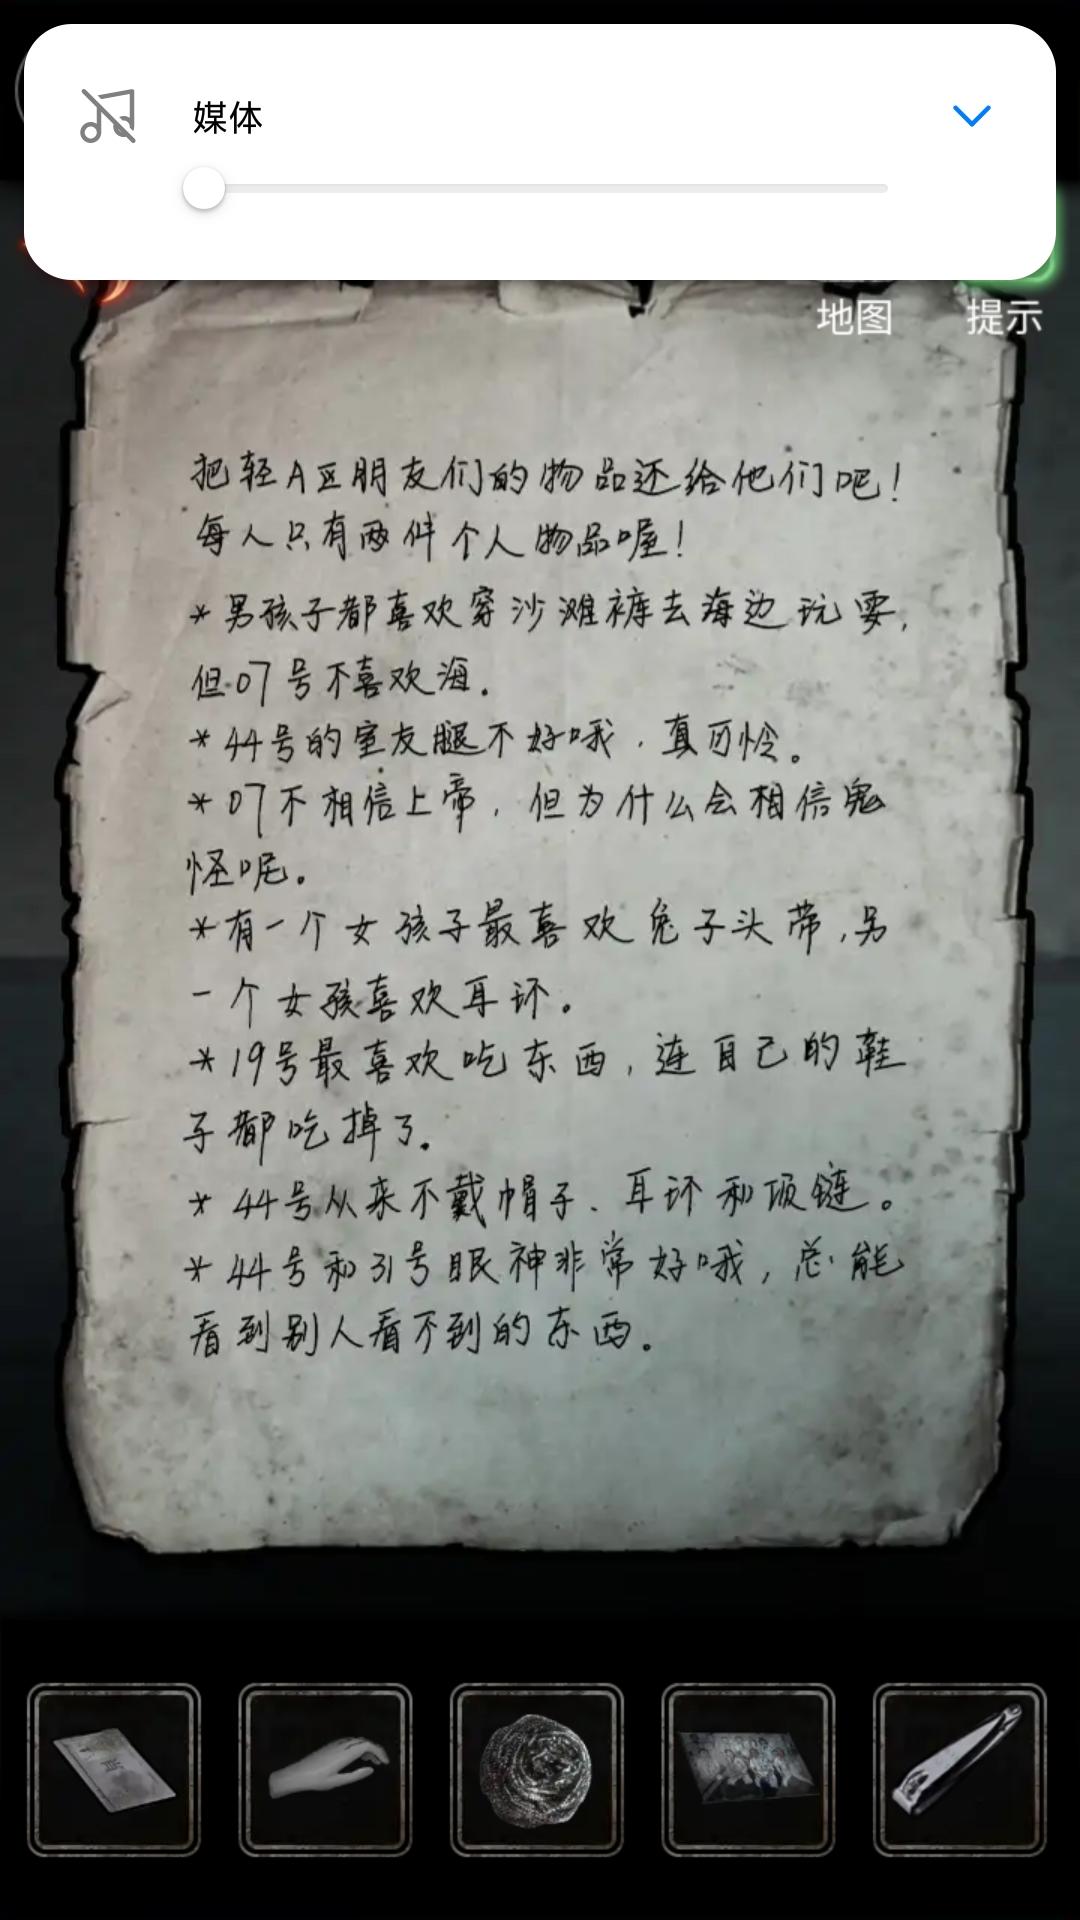 媒体
地图 提示
把轻A区朋友们的物品还给他们吧！
每人只有两件个人物品喔！
*男孩子都喜欢穿沙滩裤去海边玩耍，
但07号不喜欢海。
*44号的室友腿不好哦，真可怜。
*07不相信上帝，但为什么会相信鬼
怪呢。
*有一个女孩子最喜欢兔子头带，另
一个女孩喜欢耳环。
*19号最喜欢吃东西，连自己的鞋
子都吃掉了。
*44号从来不戴帽子、耳环和项链。
*44号和31号眼神非常好哦，总能
看到别人看不到的东西。